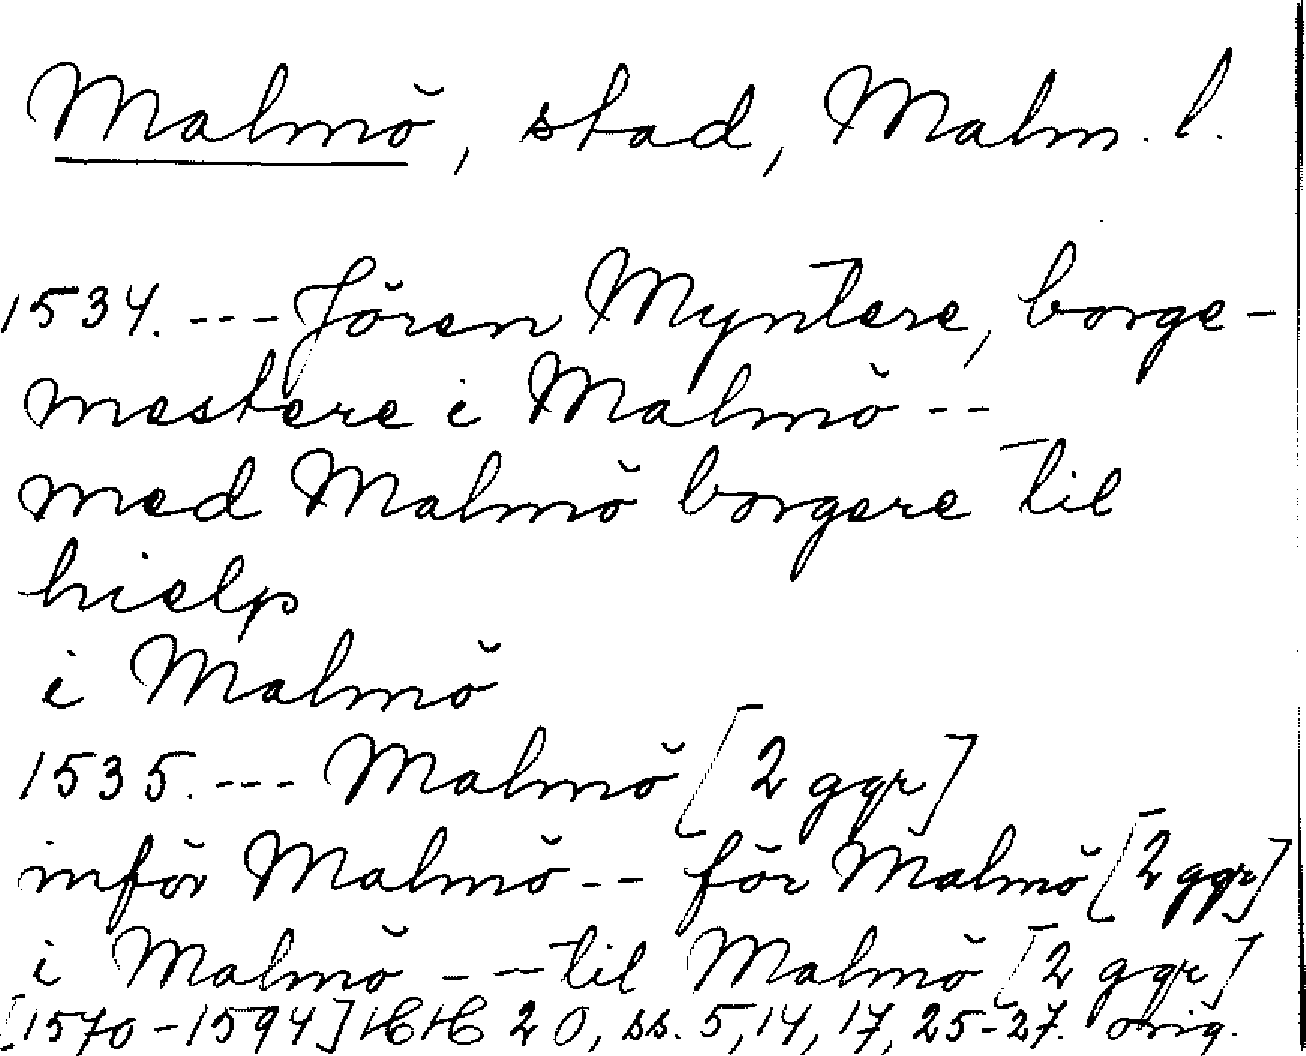 Malmö, stad, Malm. l.
1534. --- Jören Myntere, borge-
mestere i Malmö --
med Malmö borgere til
hielp
i Malmö
1535. --- Malmö [2 ggr]
inför Malmö -- för Malmö [2 ggr]
i Malmö --- til Malmö [2 ggr]
[1570-1594] HH 20, ss. 5, 14, 17, 25-27. orig.